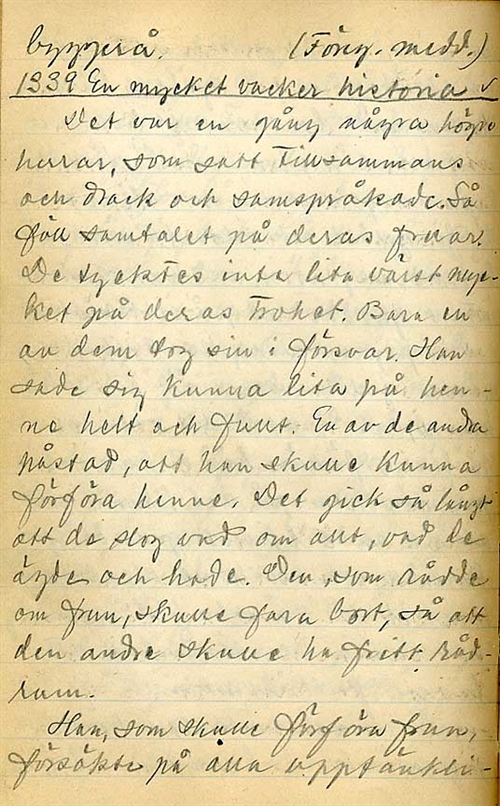 byggerå. (Föreg. medd.)
1339 En mycket vacker historia ✓
Det var en gång några högre
herrar, som satt tillsammans
och drack och samspråkade. Så
föll samtalet på deras fruar.
De tycktes inte lita värst myc-
ket på deras trohet. Bara en
av dem tog sin i försvar. Han
sade sig kunna lita på hen-
ne helt och fullt. En av de andra
påstod, att han skulle kunna
förföra henne. Det gick så långt
att de slog vad om allt, vad de
ägde och hade. Den, som rådde
om frun, skulle fara bort, så att
den andre skulle ha fritt råd-
rum.
Han, som skulle förföra frun,
försökte på alla upptänkli-